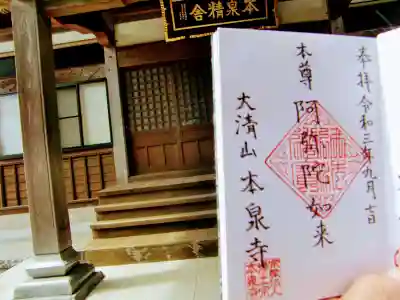 本泉精舎
奉拝 令和三年九月吉日
本尊 阿彌陀如来
大清山 本泉寺